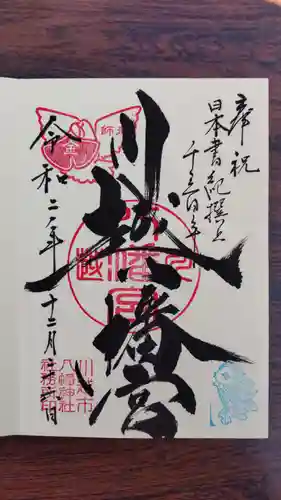 奉祝
日本書紀撰上
千三百年
川越八幡宮
令和二年十二月
川越市
八幡神社
社務所印